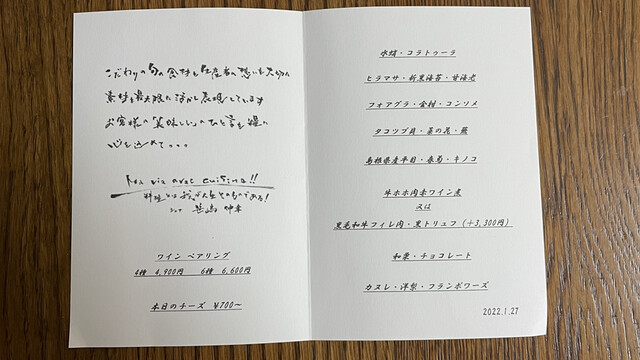 こだわりの旬の食材と生産者の想いを大切に
素材を最大限に活かし表現しています
お客様の「美味しい」のひと言を糧に
心を込めて・・・
Ma vie avec cuisine!!
料理とは
人生そのものである!
ワイン ペアリング
4種 4,900円 6種 6,600円
本日のチーズ ¥700～
水蛸・コラトゥーラ
ヒラマサ・新黒海苔・甘海老
フォアグラ・金柑・コンソメ
タコツブ貝・菜の花・蕪
島根県産平目・春菊・キノコ
牛ホホ肉赤ワイン煮
又は
黒毛和牛フィレ肉・黒トリュフ (+3,300円)
和栗・チョコレート
カヌレ・洋梨・フランボワーズ
2022.1.27